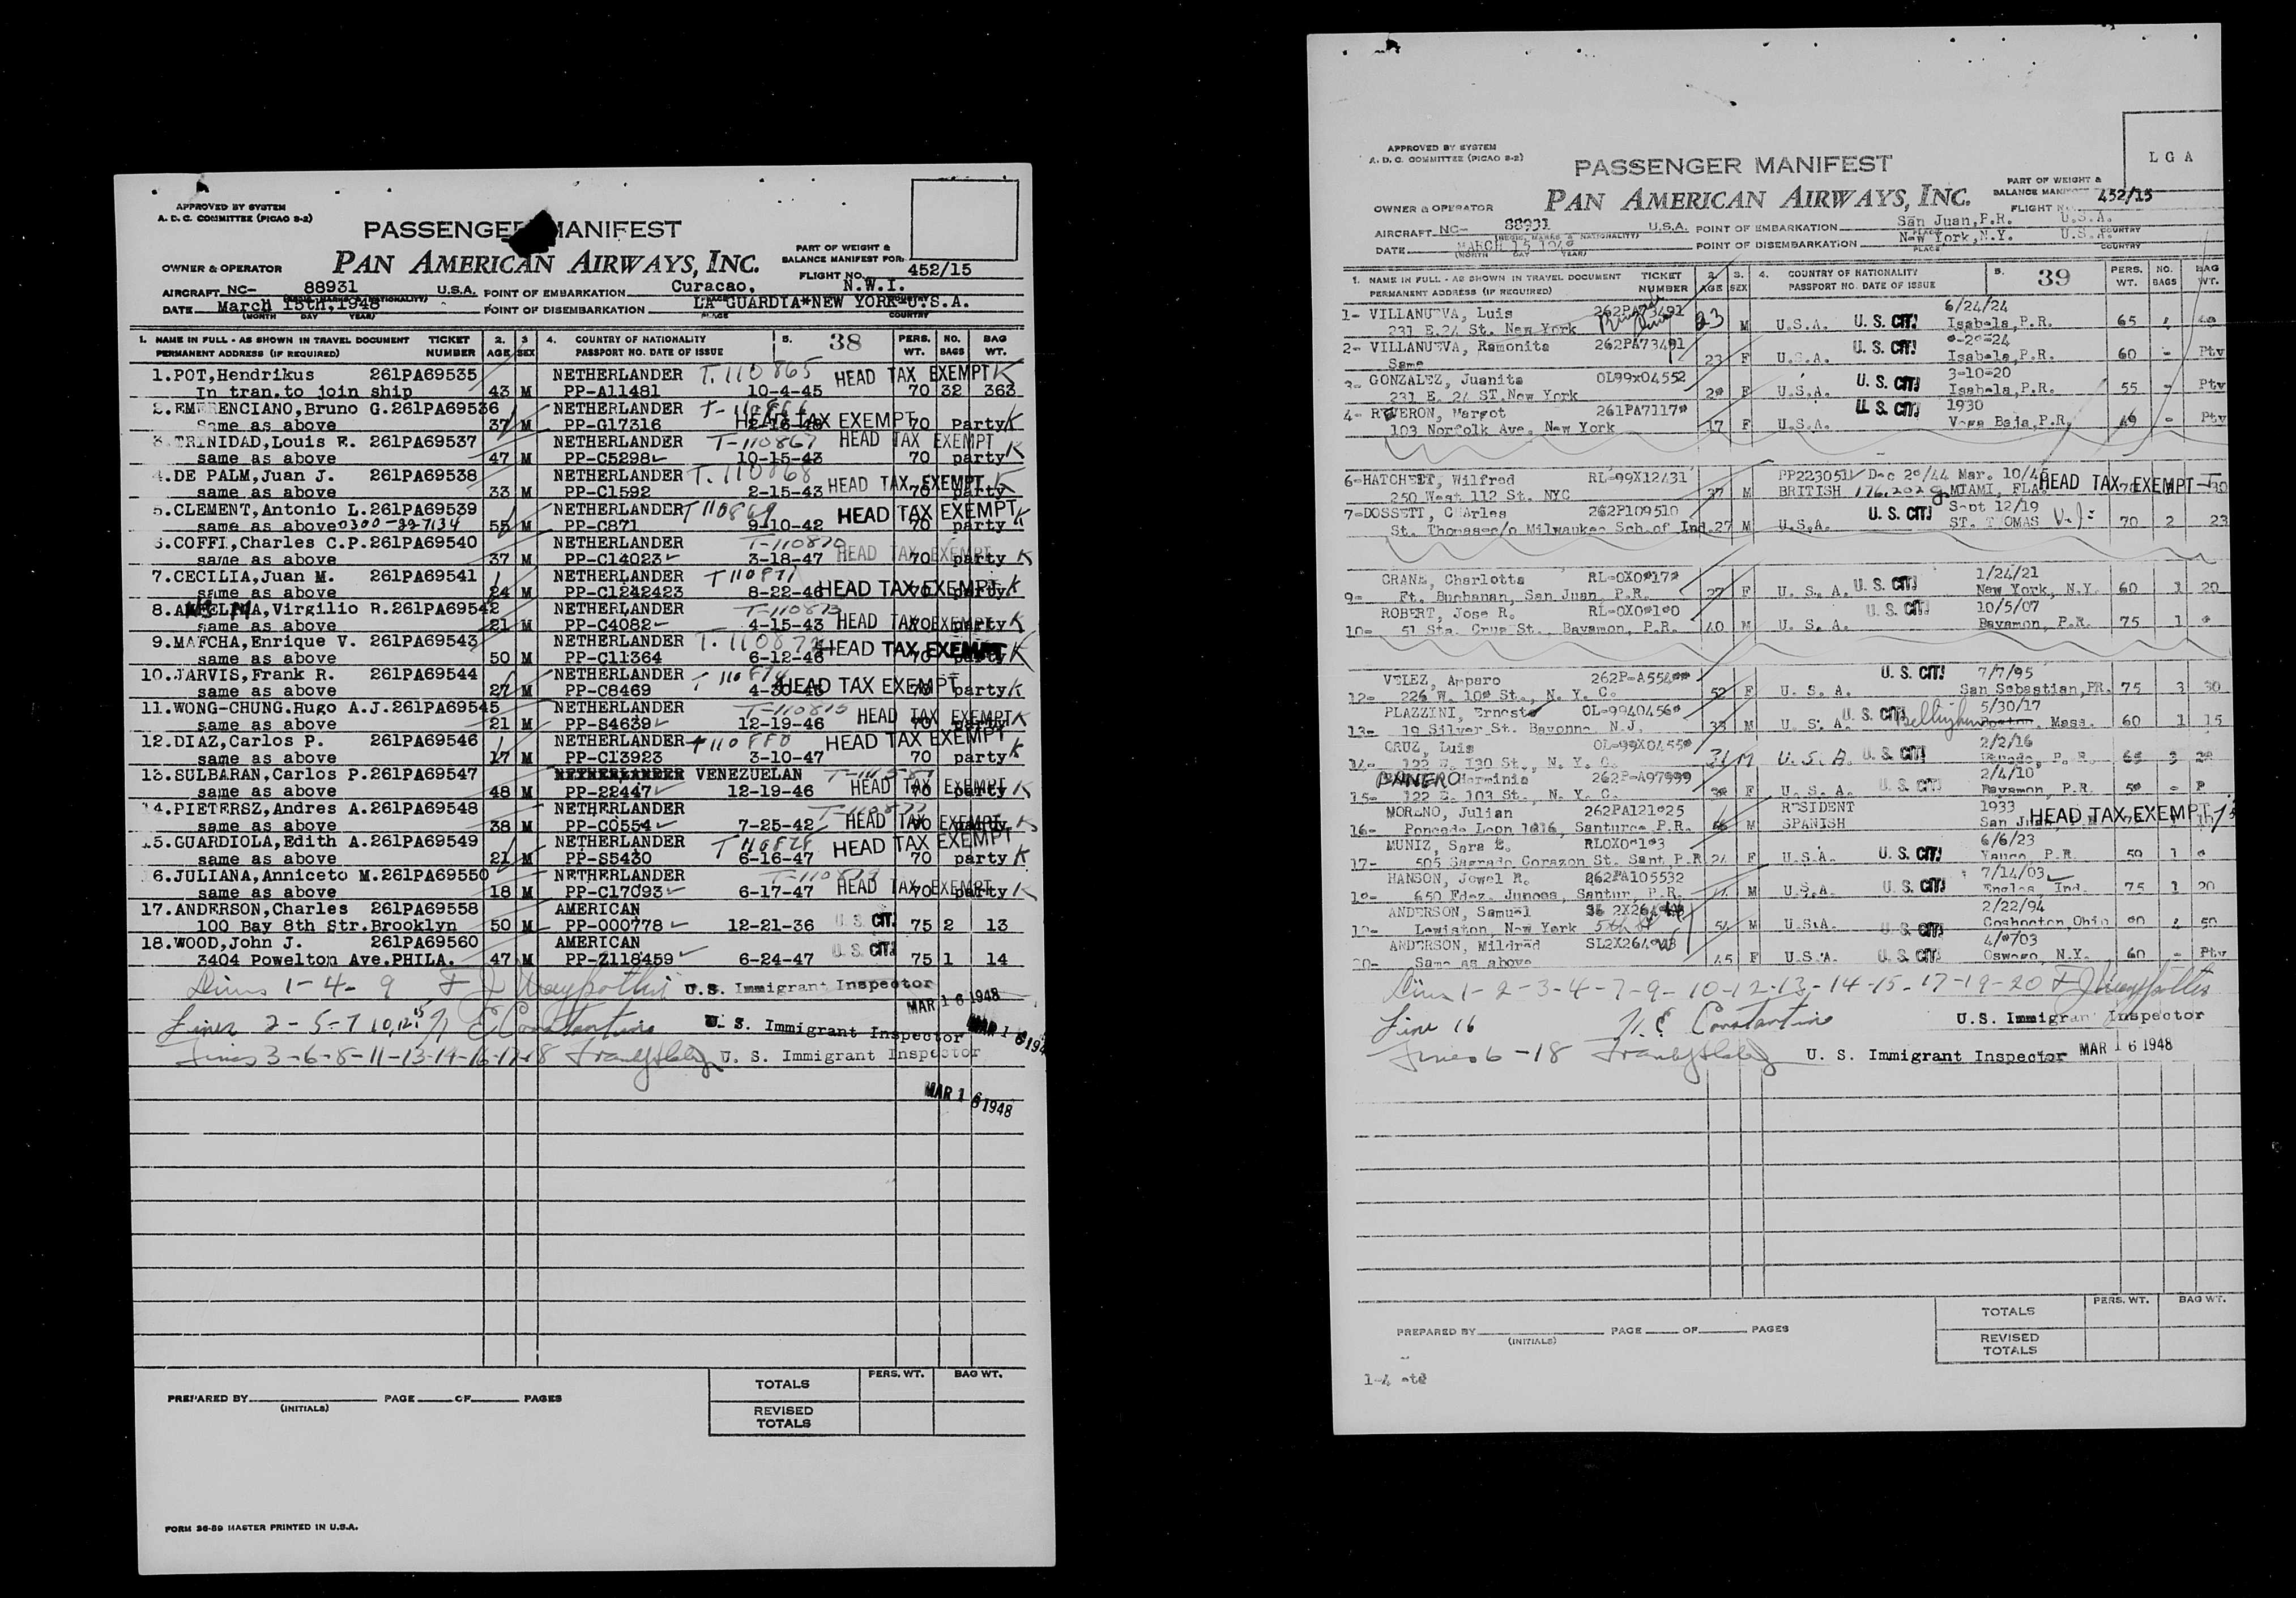 APPROVED BY SYSTEM
A. D. C. COMMITTEE (PICAO S-2)
PASSENGER MANIFEST
PAN AMERICAN AIRWAYS, INC.
PART OF WEIGHT &
BALANCE MANIFEST FOR:
OWNER & OPERATOR
FLIGHT NO. 452/15
AIRCRAFT NC- 88931 U.S.A. POINT OF EMBARKATION Curacao, N.W.I.
DATE March 15th,1948 POINT OF DISEMBARKATION LA GUARDIA*NEW YORK-U.S.A.
(MONTH DAY YEAR) PLACE COUNTRY
1. NAME IN FULL - AS SHOWN IN TRAVEL DOCUMENT TICKET 2. 3 4. COUNTRY OF NATIONALITY 5. 38 PERS. NO. BAG
PERMANENT ADDRESS (IF REQUIRED) NUMBER AGE SEX PASSPORT NO. DATE OF ISSUE WT. BAGS WT.
1.POT,Hendrikus 261PA69535 NETHERLANDER T.110865 HEAD TAX EXEMPT K
In tran.to join ship 43 M PP-A11481 10-4-45 70 32 363
2.EMERENCIANO,Bruno G.261PA69536 NETHERLANDER HEAD TAX EXEMPT
Same as above 37 M PP-G17316 70 Party K
3.TRINIDAD,Louis R. 261PA69537 NETHERLANDER T-110867 HEAD TAX EXEMPT
same as above 47 M PP-C5298 10-15-43 70 party K
4.DE PALM,Juan J. 261PA69538 NETHERLANDER T.110868
same as above 33 M PP-C1592 2-15-43 HEAD TAX EXEMPT 70 party K
5.CLEMENT,Antonio L.261PA69539 NETHERLANDER T110869 HEAD TAX EXEMPT
same as above 0300-227134 55 M PP-C871 9-10-42 70 party K
6.COFFI,Charles C.P.261PA69540 NETHERLANDER T-110870
same as above 37 M PP-C14023 3-18-47 HEAD TAX EXEMPT 70 party K
7.CECILIA,Juan M. 261PA69541 NETHERLANDER T110871
same as above 24 M PP-C1242423 8-22-46 HEAD TAX EXEMPT 70 party K
8. Virgilio R.261PA69542 NETHERLANDER T-110873
same as above 21 M PP-C4082 4-15-43 HEAD TAX EXEMPT party K
9.MAFCHA,Enrique V. 261PA69543 NETHERLANDER T.110872 HEAD TAX EXEMPT
same as above 50 M PP-C11364 6-12-46 70 party K
10.JARVIS,Frank R. 261PA69544 NETHERLANDER
same as above 27 M PP-C8469 HEAD TAX EXEMPT 70 party K
11.WONG-CHUNG.Hugo A.J.261PA69545 NETHERLANDER T-110875 HEAD TAX EXEMPT K
same as above 21 M PP-S4639 12-19-46 70 party
12.DIAZ,Carlos P. 261PA69546 NETHERLANDER T110880 HEAD TAX EXEMPT
same as above 17 M PP-C13923 3-10-47 70 party K
13.SULBARAN,Carlos P.261PA69547 NETHERLANDER VENEZUELAN
same as above 48 M PP-22447 12-19-46 HEAD TAX EXEMPT 70 party K
14.PIETERSZ,Andres A.261PA69548 NETHERLANDER T-110877
same as above 38 M PP-C0554 7-25-42 HEAD TAX EXEMPT 70 party K
15.GUARDIOLA,Edith A.261PA69549 NETHERLANDER T110878 HEAD TAX EXEMPT
same as above 21 M PP-S5430 6-16-47 70 party K
16.JULIANA,Anniceto M.261PA69550 NETHERLANDER T-110879
same as above 18 M PP-C17093 6-17-47 HEAD TAX EXEMPT 70 party K
17.ANDERSON,Charles 261PA69558 AMERICAN
100 Bay 8th Str.Brooklyn 50 M PP-000778 12-21-36 U.S. CIT. 75 2 13
18.WOOD,John J. 261PA69560 AMERICAN
3404 Powelton Ave.PHILA. 47 M PP-Z118459 6-24-47 U.S. CIT. 75 1 14
Lines 1-4-9 U.S. Immigrant Inspector
MAR 16 1948
Lines 2-5-7 10,12,15 N E Constantine U. S. Immigrant Inspector MAR 16 194
Lines 3-6-8-11-13-14-16-17-18 U. S. Immigrant Inspector
MAR 16 1948
TOTALS PERS. WT. BAG WT.
PREPARED BY (INITIALS) PAGE OF PAGES
REVISED TOTALS
FORM 36-89 MASTER PRINTED IN U.S.A.
APPROVED BY SYSTEM
A. D. C. COMMITTEE (PICAO S-2)
L G A
PASSENGER MANIFEST
PAN AMERICAN AIRWAYS, INC.
PART OF WEIGHT &
BALANCE MANIFEST 452/15
OWNER & OPERATOR
FLIGHT NO.
AIRCRAFT NC- 88931 U.S.A. POINT OF EMBARKATION San Juan,P.R. U.S.A.
DATE MARCH 15 1948 POINT OF DISEMBARKATION New York,N.Y. U.S.A.
(MONTH DAY YEAR) PLACE COUNTRY
1. NAME IN FULL - AS SHOWN IN TRAVEL DOCUMENT TICKET 2. 3. 4. COUNTRY OF NATIONALITY 5. 39 PERS. NO. BAG
PERMANENT ADDRESS (IF REQUIRED) NUMBER AGE SEX PASSPORT NO. DATE OF ISSUE WT. BAGS WT.
1- VILLANUEVA, Luis 262PA73491 6/24/24
231 E.24 St. New York 23 M U.S.A. U.S. CIT. Isabela,P.R. 65
2- VILLANUEVA, Ramonita 262PA73491 U.S. CIT.
Same 23 F U.S.A. Isabela,P.R. 60 - Ptv
3- GONZALEZ, Juanita OL99x04552 U.S. CIT. 3-10-20
231 E. 24 ST.New York F U.S.A. Isabela,P.R. 55 - Ptv
4- REVERON, Margot U.S. CIT. 1930
103 Norfolk Ave. New York 17 F U.S.A. Vega Baja,P.R. 49 - Ptv
6-HATCHETT, Wilfred RL-99X12431 PP223051
250 West 112 St. NYC 37 M BRITISH MIAMI, FLA. HEAD TAX EXEMPT
7-DOSSETT, CHarles 262P109510 U.S. CIT. Sept 12/19
St. Thomas c/o Milwaukee Sch.of Ind. 27 M U.S.A. ST. THOMAS V.I. 70 2 23
CRANE, Charlotta 1/24/21
9- Ft. Buchanan, San Juan, P.R. 27 F U. S. A. U.S. CIT. New York, N.Y. 60 1 20
ROBERT, Jose R. U.S. CIT. 10/5/07
10- 51 Sta. Cruz St., Bayamon, P.R. 40 M U. S. A. Bayamon, P.R. 75 1
VELEZ, Amparo U.S. CIT. 7/7/95
12- 226 W. St., N. Y. C. 52 F U. S. A. San Sebastian,PR. 75 3 30
PLAZZINI, Ernesto U.S. CIT. 5/30/17
13- 19 Silver St. Bayonne, N.J. M U. S. A. Bellingham Boston, Mass. 60 1 15
CRUZ, Luis 2/2/16
14- 122 E. 130 St., N. Y. C. 31 M U. S. A. U.S. CIT. P. R. 65 3
Herminia 2/4/10
15- 122 E. 103 St., N. Y. C. F U. S. A. U.S. CIT. Bayamon, P.R.
MORENO, Julian RESIDENT 1933
16- Ponce de Leon 1816, Santurce P.R. M SPANISH San Juan HEAD TAX EXEMPT
MUNIZ, Sara 6/6/23
17- 505 Sagrado Corazon St. Sant P.R 24 F U.S.A. U.S. CIT. Yauco, P.R. 50 1
HANSON, Jewel R. 262PA105532 7/14/03
650 Fdez. Juncos, Santur, P.R. M U.S.A. U.S. CIT. Ind. 75 1 20
ANDERSON, Samuel 2/22/94
Lewiston, New York 54 M U.S.A. U.S. CIT. Coshocton,Ohio 50
ANDERSON, Mildred
20- Same as above 45 F U.S.A. U.S. CIT. Oswego, N.Y. 60 - Ptv
Lines 1-2-3-4-7-9-10-12-13-14-15-17-19-20
Line 16 N. E Constantine U.S. Immigrant Inspector
Lines 6-18 U. S. Immigrant Inspector MAR 16 1948
TOTALS PERS. WT. BAG WT.
PREPARED BY (INITIALS) PAGE OF PAGES
REVISED TOTALS